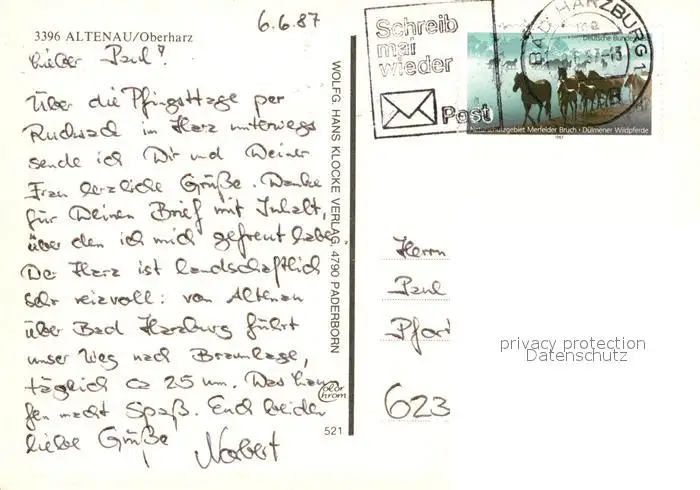 6.6.87
3396 ALTENAU/Oberharz
Lieber Paul!
Über die Pfingsttage per
Rucksack im Harz unterwegs
sende ich Dir und Deiner
Frau herzliche Grüße. Danke
für Deinen Brief mit Inhalt,
über den ich mich gefreut habe.
Der Harz ist landschaftlich
sehr reizvoll: von Altenau
über Bad Harzburg führt
unser Weg nach Braunlage,
täglich ca 25 km. Das Lau-
fen macht Spaß. Euch beiden
liebe Grüße
Norbert
WOLFG. HANS KLOCKE VERLAG, 4790 PADERBORN
Color chrom
521
Schreib
mal
wieder
Post
BAD HARZBURG 1
Deutsche Bundes
Naturschutzgebiet Merfelder Bruch · Dülmener Wildpferde
1987
Herrn
Paul
623
privacy protection
Datenschutz